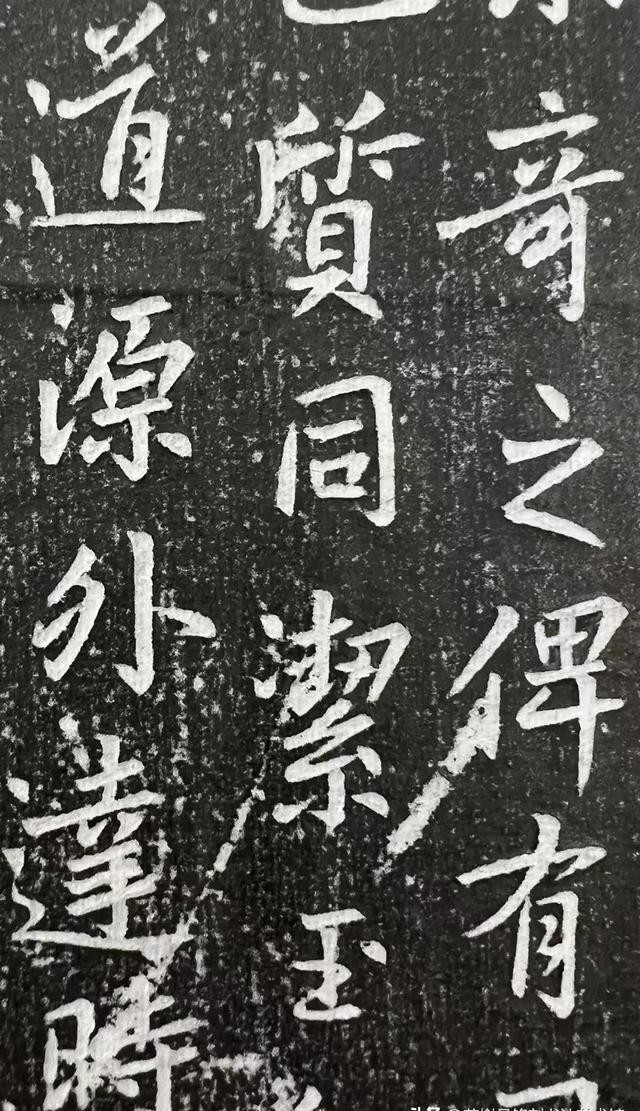 奇之俾有
質同潔玉
道源外達時